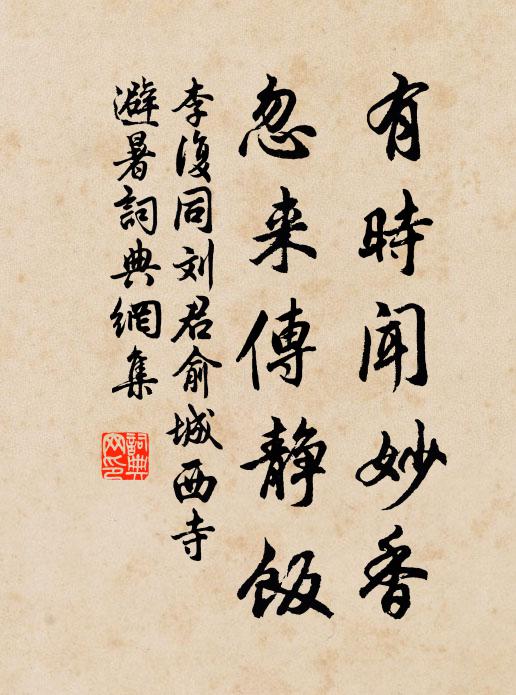 有時聞妙香
忽来傳静飯
李復同刘君俞城西寺
避暑詞典網集
詞典网印